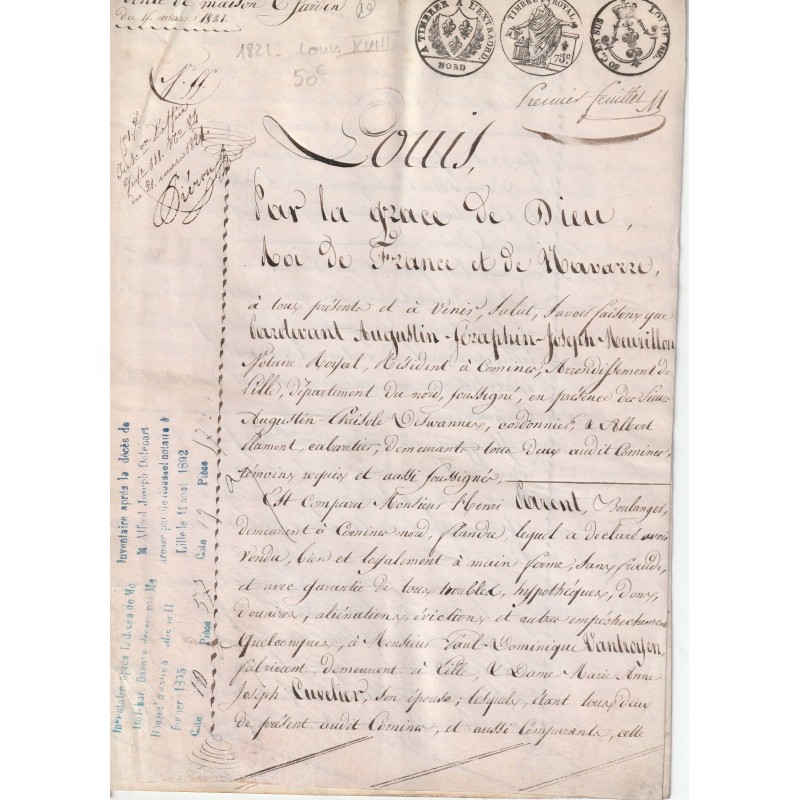 de maison & Jardin
du 15 mars 1821.
1821 - Louis XVIII
50€
A TIMBRER A L'EXTRAORD.
NORD
TIMBRE ROYAL
75c
LOI DE 1816
Premier feuillet
N.º 55
du 21 mars 1821
Louis,
Par la grace de Dieu,
Roi de France et de Navarre,
à tous présents et à Venir, Salut, Savoir faisons que
Pardevant Augustin-Séraphin-Joseph-Maurillon
Notaire Royal, Résident à Comines, Arrondissement de
Lille, département du nord, soussigné, en présence des Sieurs
Augustin-Christole Deswannes, cordonnier, & Albert
flament, cabaretier, demeurants tous deux audit Comines,
témoins requis et aussi soussignés,
Est Comparu Monsieur Henri Parent, Boulanger,
demeurant à Comines nord, flandre, lequel a déclaré avoir
Vendu, bien et légalement à main ferme, sans fraude,
et avec garantie de tous troubles, hypothèques, dons,
douaires, aliénations, évictions et autres empêchements
Quelconques, à Monsieur Paul-Dominique Vantroyen
fabricant, demeurant à Lille, & Dame Marie Anne
Joseph Cuvelier, son épouse; lesquels, étant tous deux
de présent audit Comines, et aussi Comparants, cette
Inventaire après le décès de
M Alfred Joseph Delepart
dressé par Me Roussel notaire à
Lille le 11 août 1892
Cote 19 Pièce 12
Inventaire après le décès de Me
Février 1875
Cote 10 Pièce 57